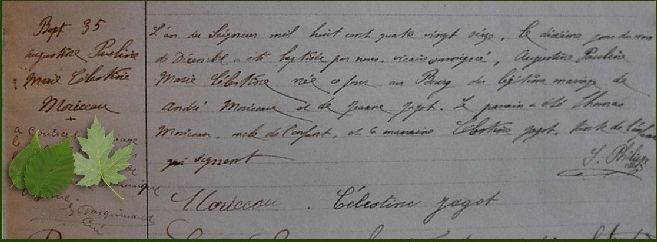 Bapt 35
Augustine Pauline
Marie Célestine
Moriceau
+
L'an du Seigneur mil huit cent quatre vingt seize, le dixième jour du mois
de Décembre a été baptisée par nous, vicaire soussigné, Augustine Pauline
Marie Célestine née ce jour au Bourg du légitime mariage de
André Moriceau et de Jeanne Jagot. Le parrain a été Thomas
Moriceau, oncle de l'enfant, et la marraine Célestine Jagot, tante de l'enfant
qui signent
J. Philippe
Moriceau Célestine Jagot